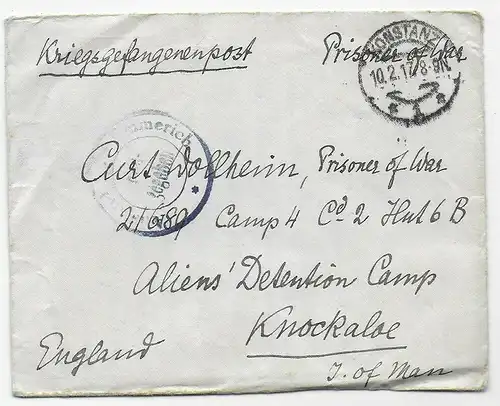 Kriegsgefangenenpost Prisoner of War
KONSTANZ
10.2.17. 8-9N
Emmerich
Curt Dollheim, Prisoner of War
Camp 4 Cd 2 Hut 6 B
Aliens' Detention Camp
Knockaloe
England
I. of Man